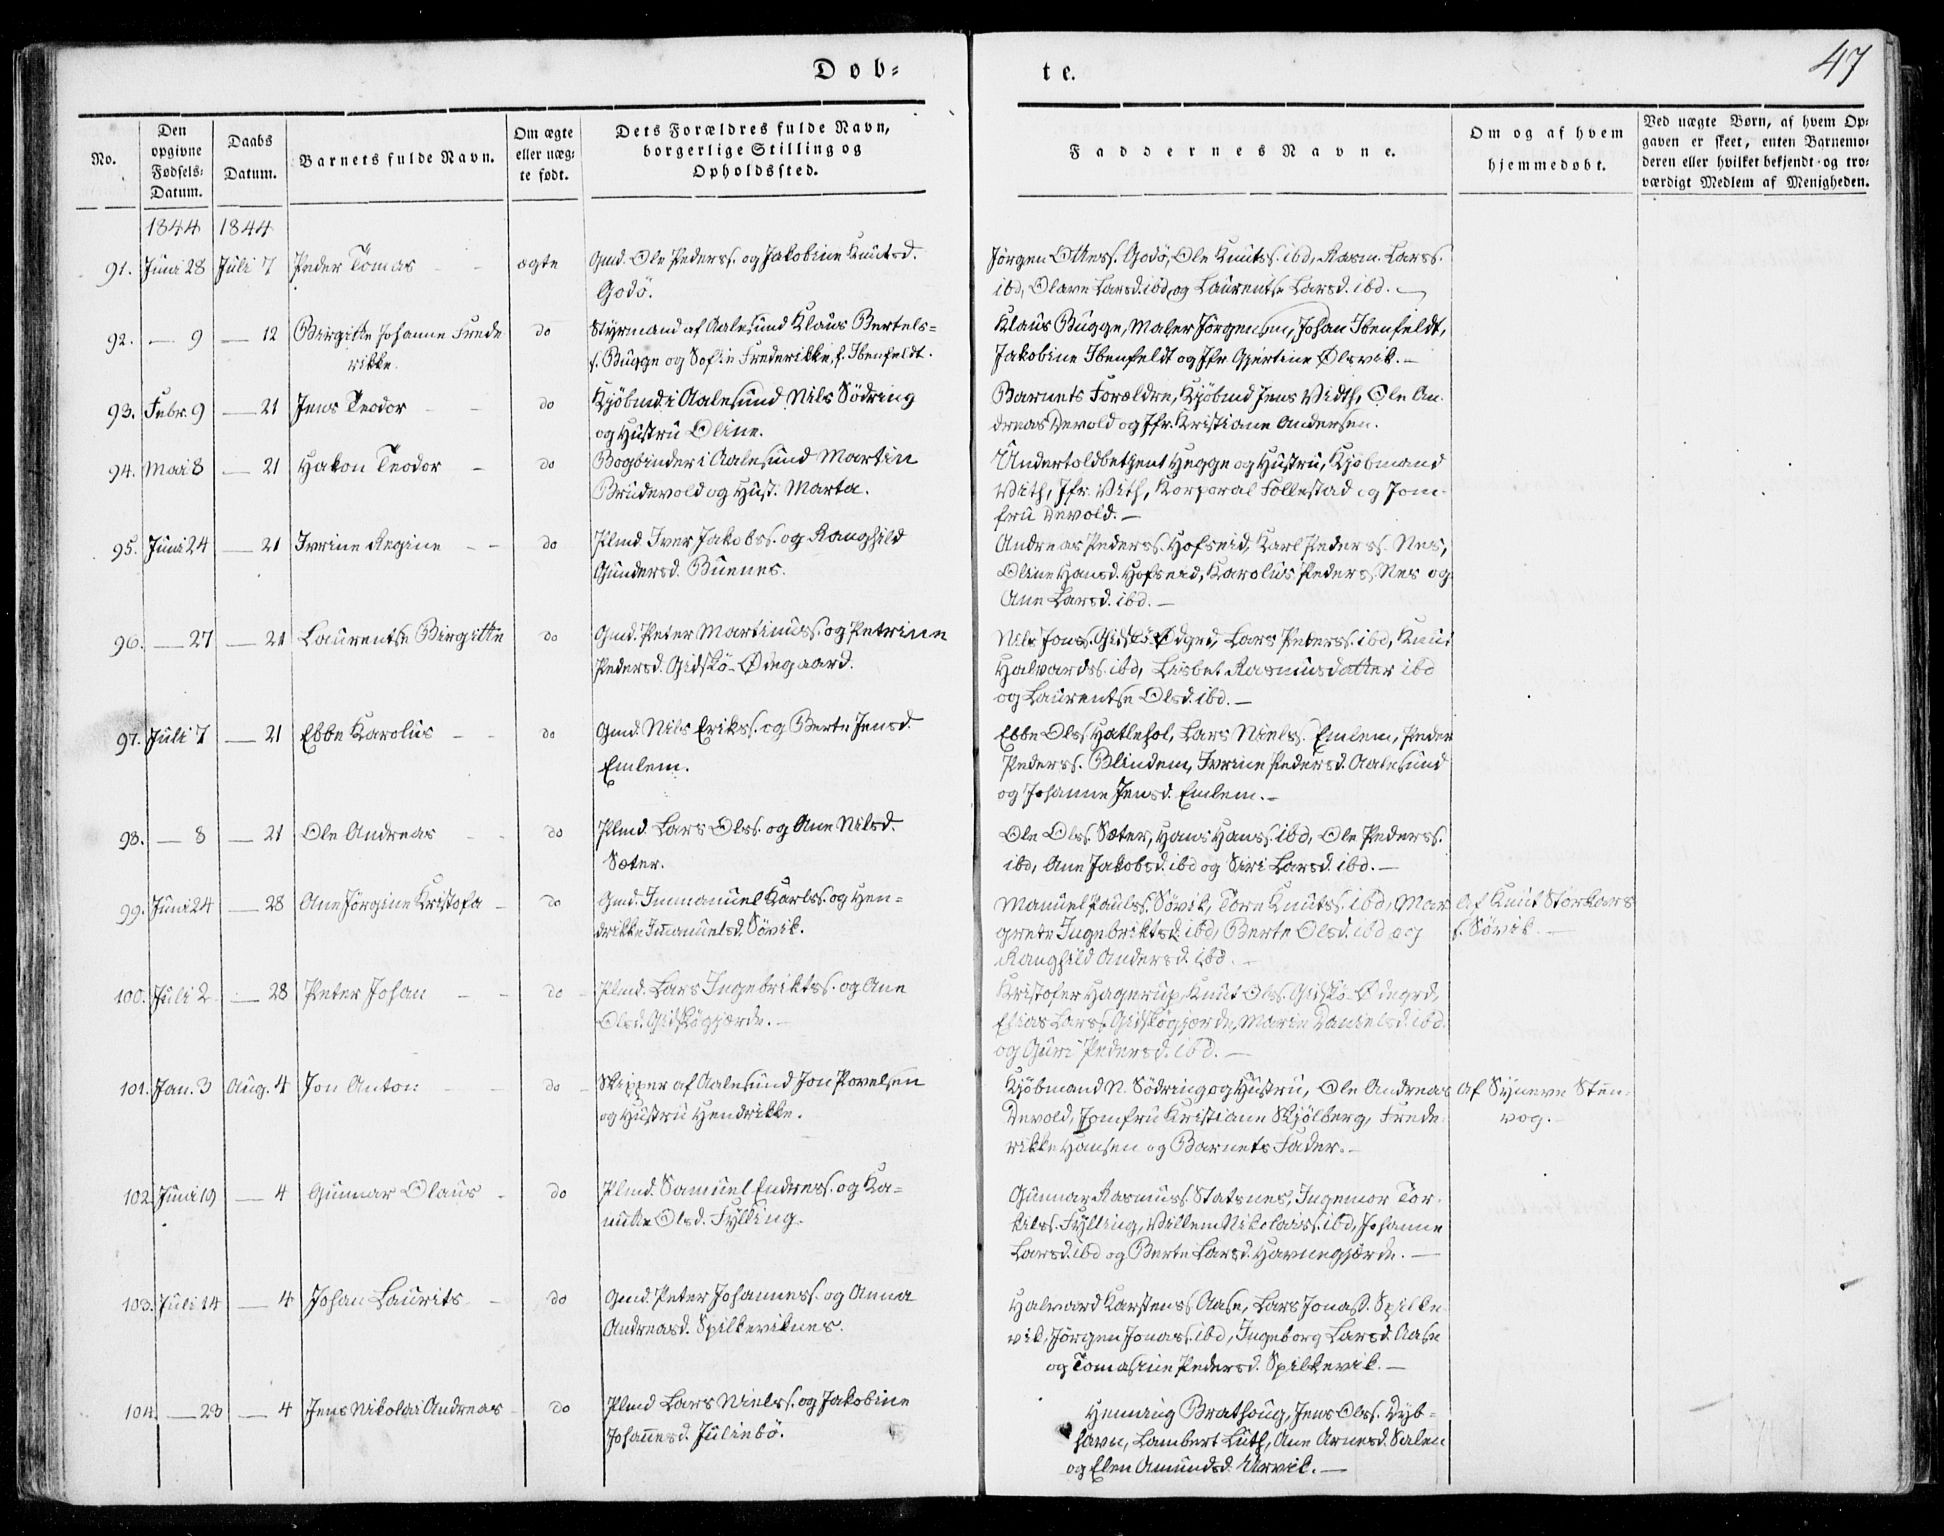 Døb= te. 47
No.
Den opgivne Fødsels-Datum.
Daabs Datum.
Barnets fulde Navn.
Om ægte eller uæg-te født.
Dets Forældres fulde Navn, borgerlige Stilling og Opholdssted.
Faddernes Navne.
Om og af hvem hjemmedøbt.
Ved uægte Børn, af hvem Op-gaven er skeet, enten Barnemo-deren eller hvilket bekjendt og tro-værdigt Medlem af Menigheden.
1844 1844
91. Juni 28 Juli 7 Peder Tomas ægte Gmd. Ole Peders. og Jakobine Knutsd.
Godö.
Jörgen Ottess. Godö, Ole Knutss. ibd, Rasm. Larss.
ibd, Olave Larsd. ibd og Laurentse Larsd. ibd. —
92. — 9 — 12 Birgitte Johanne Frede
rikke.
do Styrmand af Aalesund Klaus Bertels=
s. Bugge og Sofie Frederikke, f. Ibenfeldt.
Klaus Bugge, Maler Jörgensen, Johan Ibenfeldt,
Jakobine Ibenfeldt og Jfr. Gjertine Ølsvik. —
93. Febr. 9 — 21 Jens Teodor do Kjöbmd. i Aalesund Nils Södring
og Hustru Oline.
Barnets Forældre, Kjöbmd Jens Vidth, Ole An-
dreas Devold og Jfr. Kristiane Andersen.
94. Mai 8 — 21 Hakon Teodor do Bogbinder i Aalesund Martin
Brudevold og Hust. Marta.
Undertoldbetjent Hegge og Hustru, Kjöbmand
Vith, Jfr. Vith, Korporal Follestad og Jom-
fru Devold. —
95. Juni 24 — 21 Ivrine Regine do Plmd. Iver Jakobss. og Ranghild
Gundersd. Buenes.
Andreas Peders. Hofseid, Karl Peders. Nes,
Oline Hansd. Hofseid, Karolus Peders. Nes og
Ane Larsd. ibd. —
96. — 27 — 21 Laurentse Birgitte do Gmd. Peter Martinuss. og Petrine
Pedersd. Gidskö-Ødegaard.
Nils Jons. Gidskö-Ødgrd, Lars Peterss. ibd, Knut
Halvardss. ibd, Lisbet Rasmusdatter ibd
og Laurentse Olsd. ibd. —
97. Juli 7 — 21 Ebbe Karolus do Gmd. Nils Erikss. og Berte Jensd.
Emlem.
Ebbe Olss. Hatlehol, Lars Niels. Emlem, Peder
Peders. Blindem, Ivrine Pedersd. Aalesund
og Johanne Jensd. Emlem. —
98. — 8 — 21 Ole Andreas do Plmd. Lars Olss. og Ane Nilsd.
Sæter.
Ole Olss. Sæter, Hans Hanss. ibd, Ole Peders.
ibd, Ane Jakobsd. ibd og Siri Larsd. ibd. —
99. Juni 24 — 28 Ane Jörgine Kristofa do Gmd. Immanuel Karlss. og Hen=
drikke Imanuelsd. Sövik.
Manuel Paulss. Sövik, Tore Knutss. ibd, Mar
grete Ingebriktsd. ibd, Berte Olsd. ibd og
Ranghild Andersd. ibd. —
Af Knut Storkars
s. Sövik. —
100. Juli 2 — 28 Peter Johan do Plmd. Lars Ingebriktss. og Ane
Olsd. Gidskögjærde. —
Kristofer Hagerup, Knut Olss. Gidskö-Ødegrd,
Elias Larss. Gidskögjærde, Marie Danielsd. ibd.
og Guri Pedersd. ibd. —
101. Jan. 3 Aug. 4 Jon Anton do Skipper af Aalesund Jon Povelsen
og Hustru Hendrikke.
Kjöbmand N. Södring og Hustru, Ole Andreas
Devold, Jomfru Kristiane Skjölberg, Frede-
rikke Hansen og Barnets Fader. —
Af Synneve Sten-
vog. —
102. Juni 19 — 4 Gunnar Olaus do Plmd. Samuel Endress. og Ka=
nutte Olsd. Fylling.
Gunnar Rasmuss. Statsnes, Ingemor Tor-
kilss. Fylling, Villem Nikolaiss. ibd, Johanne
Larsd. ibd og Berte Larsd. Havnegjærde. —
103. Juli 14 — 4 Johan Laurits do Gmd. Peter Johanness. og Anna
Andreasd. Spilkeviknes.
Halvard Karstenss. Aase, Lars Jonass. Spilke-
vik, Jörgen Jonass. ibd, Ingeborg Larsd. Aase
og Tomasine Pedersd. Spilkevik. —
104. — 23 — 4 Jens Nikolai Andreas do Plmd Lars Nielss. og Jakobine
Johannesd. Julinbö.
Henning Brathoug, Jens Olss. Dyb=
havn, Lambert Luth, Ane Arnesd. Salen
og Elen Amundsd. Urvik. —